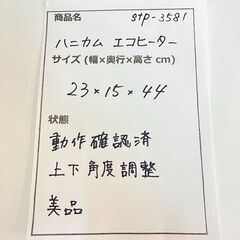 商品名 stp-3581
ハニカム エコヒーター
サイズ (幅×奥行×高さ cm)
23×15×44
状態
動作確認済
上下角度調整
美品